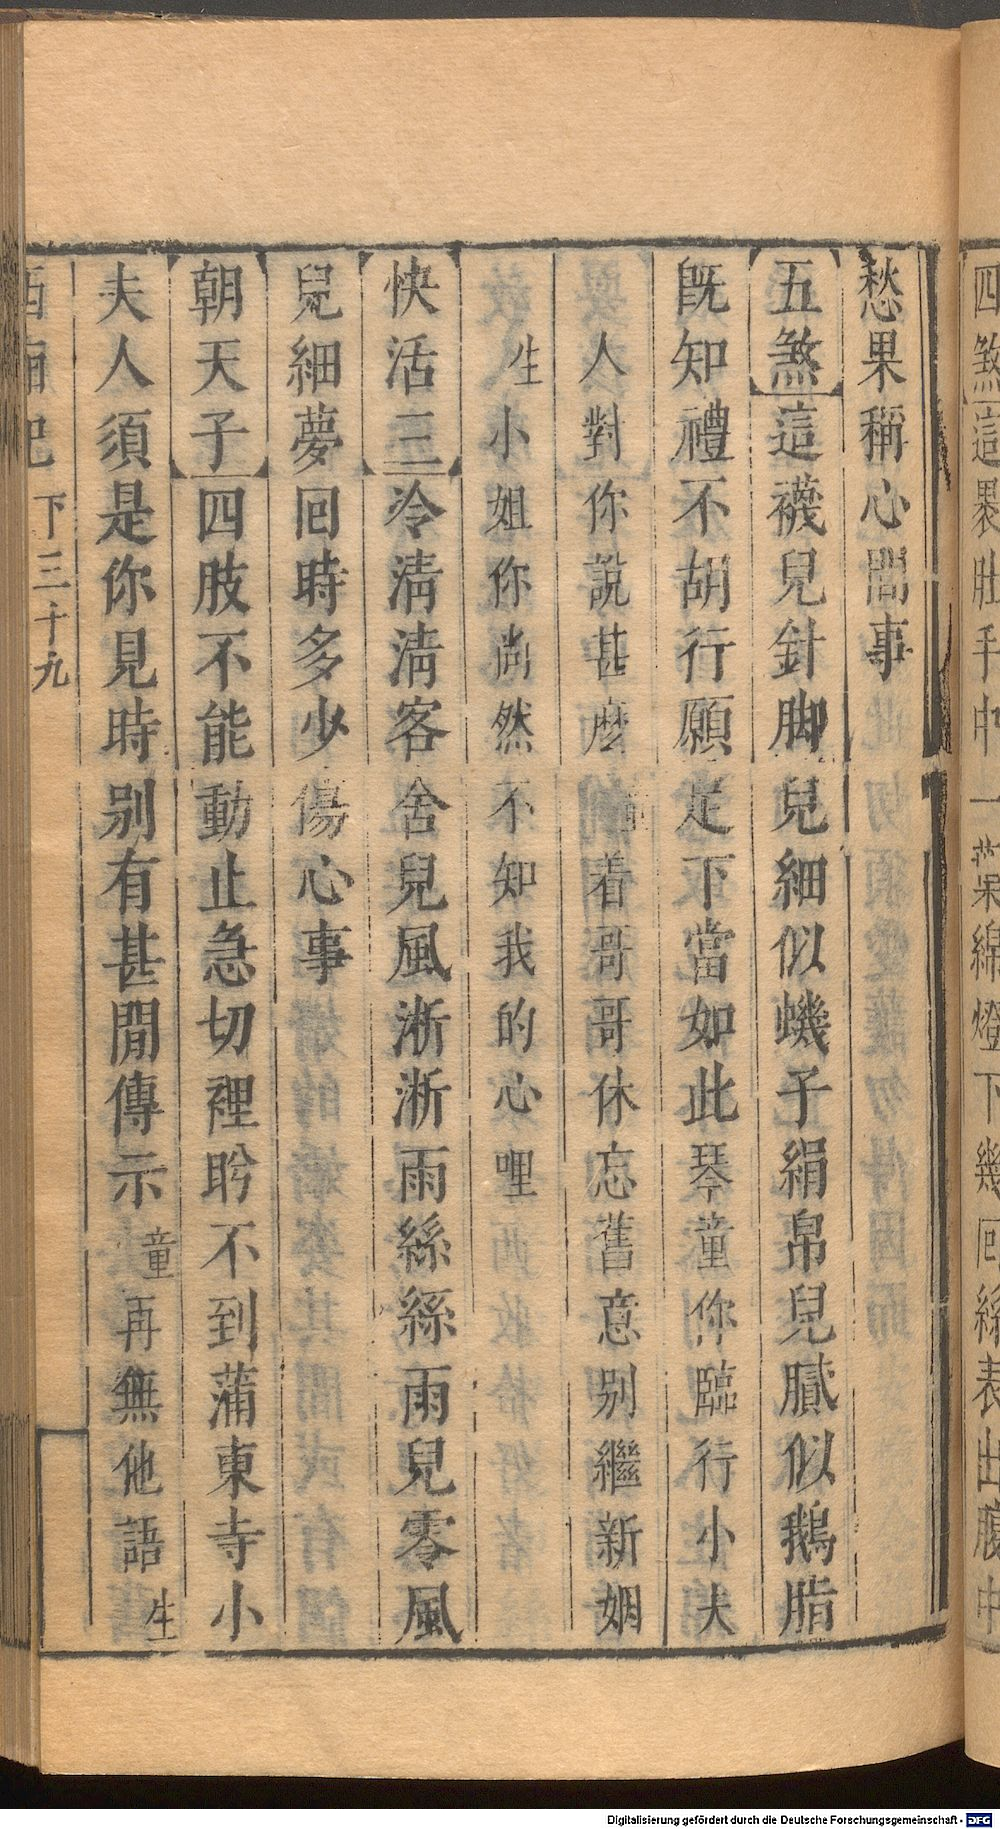 四煞這裹肚手中一葉綿燈下幾回絲表出腹中
愁果稱心間事
五煞這襪兒針脚兒細似蟣子絹帛兒膩似鵝脂
旣知禮不胡行願足下當如此琴童你臨行小夫
人對你說甚麽童着哥哥休忘舊意别繼新姻
生小姐你尚然不知我的心哩
快活三冷清清客舍兒風淅淅雨絲絲雨兒零風
兒細夢回時多少傷心事
朝天子四肢不能動止急切裡盻不到蒲東寺小
夫人須是你見時别有甚閒傳示童再無他語生
西廂記 下三十九
Digitalisierung gefördert durch die Deutsche Forschungsgemeinschaft - DFG